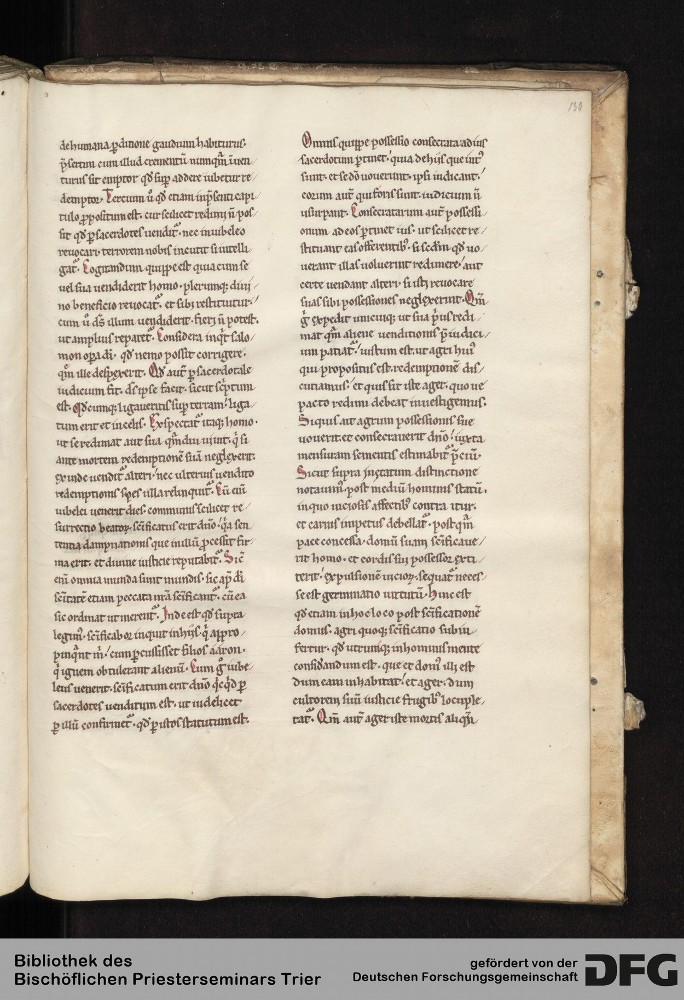 130
de humana ꝑditione gaudium habiturus.
p̃sertim cum illud crementũ numqm̃ ĩuen/
turus sit emptor qd̃ sup̲ addere iubetur re/
demptor. Tercium ũ qd̃ etiam in p̃senti capi/
tulo ꝓpositum est. cur scilicet redimi ñ pos/
sit qd̃ ꝑ sacerdotes vendit᷑. nec in iubeleo
reuocari. terrorem nobis incutit si intelli/
gat᷑. Cogitandum quippe est quia cum se
vel sua vendiderit homo. plerumq; diui/
no beneficio reuocat᷑. et sibi restituitur/
cum ũ dš illum vendiderit. fieri ñ potest.
ut amplius reparet᷑. Considera inqt̃ salo/
mon oꝑa di. qd̃ nemo possit corrigere.
qm̃ ille despexerit. Qd̃ aut̃ ꝑ sacerdotale
iudicium fit. dš ipse facit. sicut scptum
est. Qd̃cumq; ligaueritis sup̲ terram/ liga/
tum erit et in celis. Exspectat᷑ itaq; homo.
ut se redimat aut sua qm̃diu uiuit. q̃ si
ante mortem redemptionẽ suã neglexerit.
exinde vendit᷑ alteri/ nec ulterius vendito
redemptionis spes ulla relinquit᷑. Cũ eiñ
iubelei venerit dies. communis scilicet re/
surrectio beatoꝝ. scĩficatus erit dño/ q̃a sen
tentia dampnationis que in illũ ꝓcessit fir/
ma erit. et diuine iusticie reputabit᷑. Sic̃
eiñ omnia munda sunt mundis. sic ap̃ dĩ
scĩtatẽ etiam peccata nr̃a scĩficant᷑. cũ ea
sic ordinat ut merent᷑. Inde est qd̃ supra
legim᷒. scĩficabor inquit in hijs. q̃ appro/
pinqñt m̃/ cum ꝑcussisset filios aaron.
q̃ ignem obtulerant alienũ. Cum g̃ iube/
leus venerit. scĩficatum erit dño qc̃qd̃ ꝑ
sacerdotes venditum est. ut iudelicet
ꝑ illũ confirmet᷑. qd̃ ꝑ istos statutum est.
Omnis quippe possessio consecrata ad ius
sacerdotum ꝑtinet. quia de hijs que int᷒
sunt. et se dõ vouerint. ipsi iudicant/
eorum aut̃ qui foris sunt iudicium ñ
usurpant. Consecratarum aut̃ possessi
onum ad eos ꝑtinet ius. ut scilicet re/
stituant eas offerentib᷒. si scdm̃ qd̃ vo/
uerant illas voluerint redimere/ aut
certe vendant alteri. si isti reuocare
suas sibi possessiones neglexerint. Qm̃
g̃ expedit unicuiq; ut sua p̃us redi/
mat qm̃ aliene venditionis p̃iudici/
um patiat᷑/ iustum est. ut agri hui᷒
qui propositus est. redemptionẽ dis/
cutiamus. et quis sit iste ager. quo ve
ꝑ pacto redimi debeat inuestigemus.
Si quis aut agrum possessionis sue
vouerit. et consecrauerit dño/ iuxta
mensuram sementis estimabit᷑ p̃ciũ.
Sicut supra iuxtatam distinctione
notauim᷒. post mediũ hominis statũ.
in quo viciosis affectib᷒ contra itur.
et carnis impetus debellat᷑. postqm̃
pace concessa. domũ suam scĩficaue/
rit homo. et cordis sui possessor exti/
terit/ expulsionẽ vicioꝝ. sequat᷑ neces
se est germinatio virtutũ. Hinc est
qd̃ etiam in hoc loco post scĩficationẽ
domus. agri quoq; scĩficatio subin/
fertur. qd̃ utrumq; in hominis mente
considandum est. que et dom᷒ illi est
dum eam inhabitat/ et ager. dum
cultorem suũ iusticie frugib᷒ locuple/
tat᷑. Qm̃ aut̃ ager iste mortis aliqm̃
Bibliothek des
Bischöflichen Priesterseminars Trier
gefördert von der
Deutschen Forschungsgemeinschaft
DFG